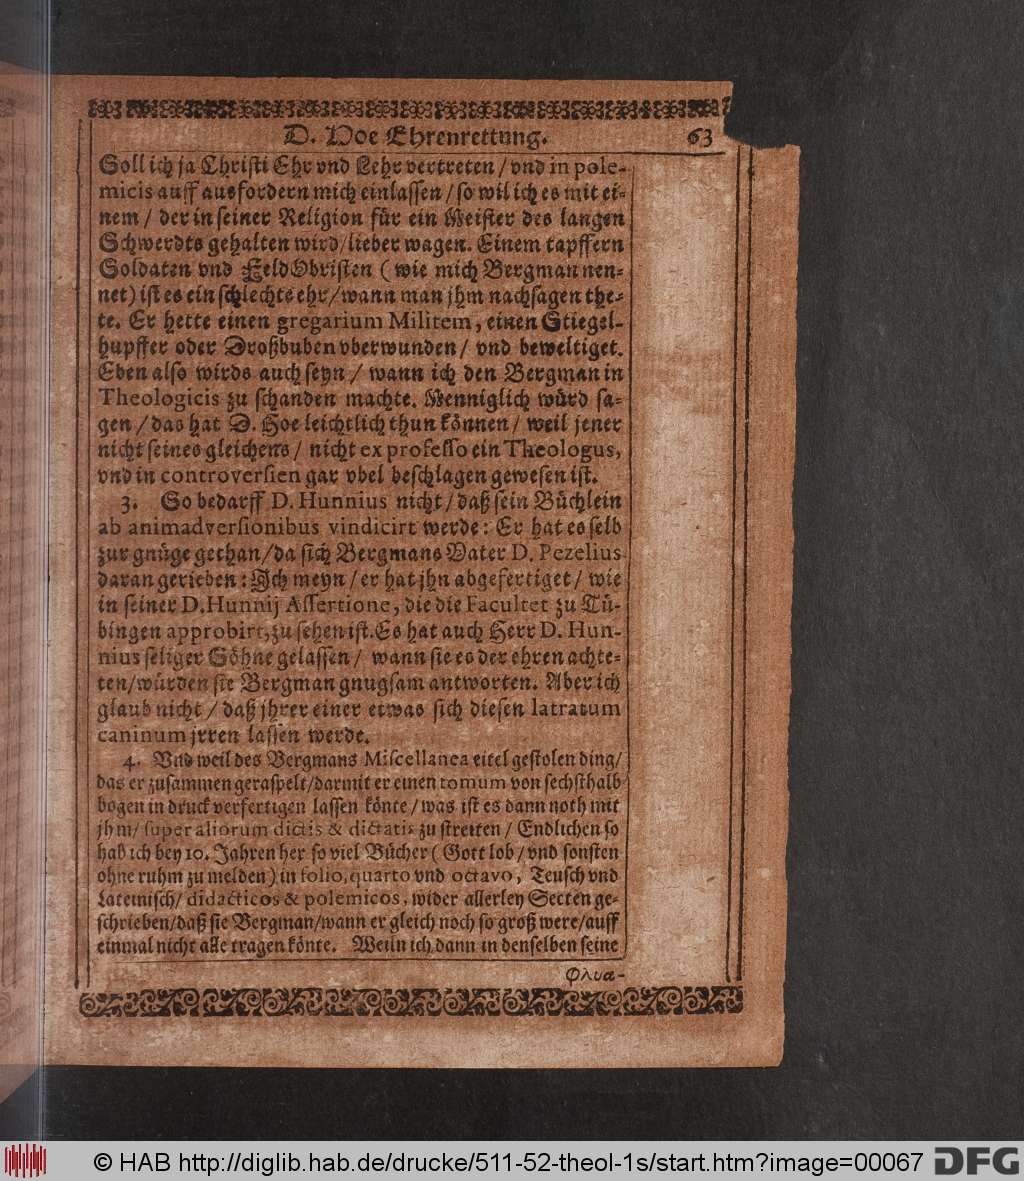 D. Hoe Ehrenrettung. 63
Soll ich ja Christi Ehr vnd Lehr vertreten / vnd in pole-
micis auff ausfordern mich einlassen / so wil ich es mit ei-
nem / der in seiner Religion für ein Meister des langen
Schwerdts gehalten wird / lieber wagen. Einem tapffern
Soldaten vnd FeldObristen ( wie mich Bergman nen-
net) ist es ein schlechts ehr / wann man jhm nachsagen the-
te. Er hette einen gregarium Militem, einen Stiegel-
hupffer oder Droßbuben vberwunden / vnd beweltiget.
Eben also wirds auch seyn / wann ich den Bergman in
Theologicis zu schanden machte. Menniglich würd sa-
gen / das hat D. Hoe leichtlich thun können / weil jener
nicht seines gleichens / nicht ex professo ein Theologus,
vnd in controversien gar vbel beschlagen gewesen ist.
3. So bedarff D. Hunnius nicht / daß sein Büchlein
ab animadversionibus vindicirt werde: Er hat es selb
zur gnüge gethan / da sich Bergmans Vater D. Pezelius
daran gerieben: Ich meyn / er hat jhn abgefertiget / wie
in seiner D. Hunnij Assertione, die die Facultet zu Tü-
bingen approbirt, zu sehen ist. Es hat auch Herr D. Hun-
nius seliger Söhne gelassen / wann sie es der ehren achte-
ten / würden sie Bergman gnugsam antworten. Aber ich
glaub nicht / daß jhrer einer etwas sich diesen latratum
caninum jrren lassen werde.
4. Vnd weil des Bergmans Miscellanea eitel gestolen ding /
das er zusammen geraspelt / darmit er einen tomum von sechsthalb
bogen in druck verfertigen lassen könte / was ist es dann noth mit
jhm / super aliorum dictis & dictatis zu streiten / Endlichen so
hab ich bey 10. Jahren her so viel Bücher ( Gott lob / vnd sonsten
ohne ruhm zu melden ) in folio, quarto vnd octavo, Teusch vnd
Lateinisch / didacticos & polemicos, wider allerley Secten ge-
schrieben / daß sie Bergman / wann er gleich noch so groß were / auff
einmal nicht alle tragen könte. Weiln ich dann in denselben seine
φλυα-
© HAB http://diglib.hab.de/drucke/511-52-theol-1s/start.htm?image=00067 DFG